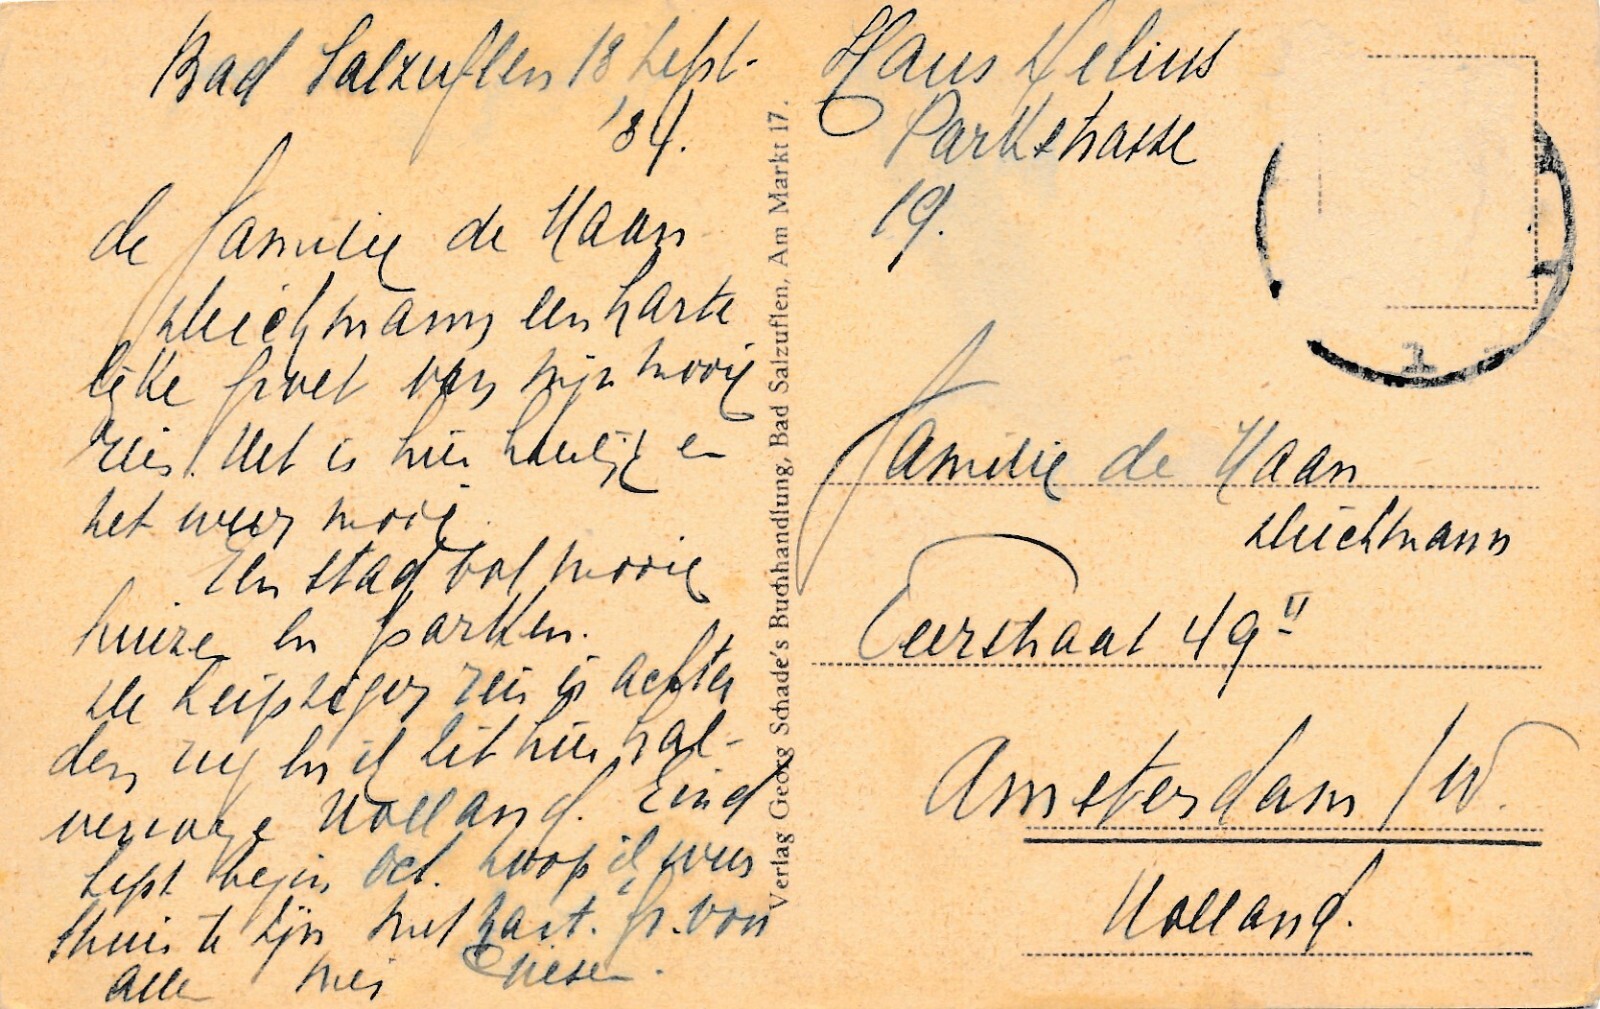 Bad Salzuflen 18 Sept.
'34.
de familie de Haan
Wiechmann een harte
lijke groet van mijn mooie
reis. Het is hier heerlijk en
het weer mooi.
Een stad vol mooie
huize en parken.
De Leipziger reis is achter
den rug en ik zit hier hal-
verwege Holland. Eind
Sept begin Oct. hoop ik weer
thuis te zijn met hart. gr. von
allen hier
Verlag Georg Schade's Buchhandlung, Bad Salzuflen, Am Markt 17.
Haus Delius
Parkstrasse
19.
1
Familie de Haan
Wiechmann
Eerstraat 49 II
Amsterdam / W.
Holland.